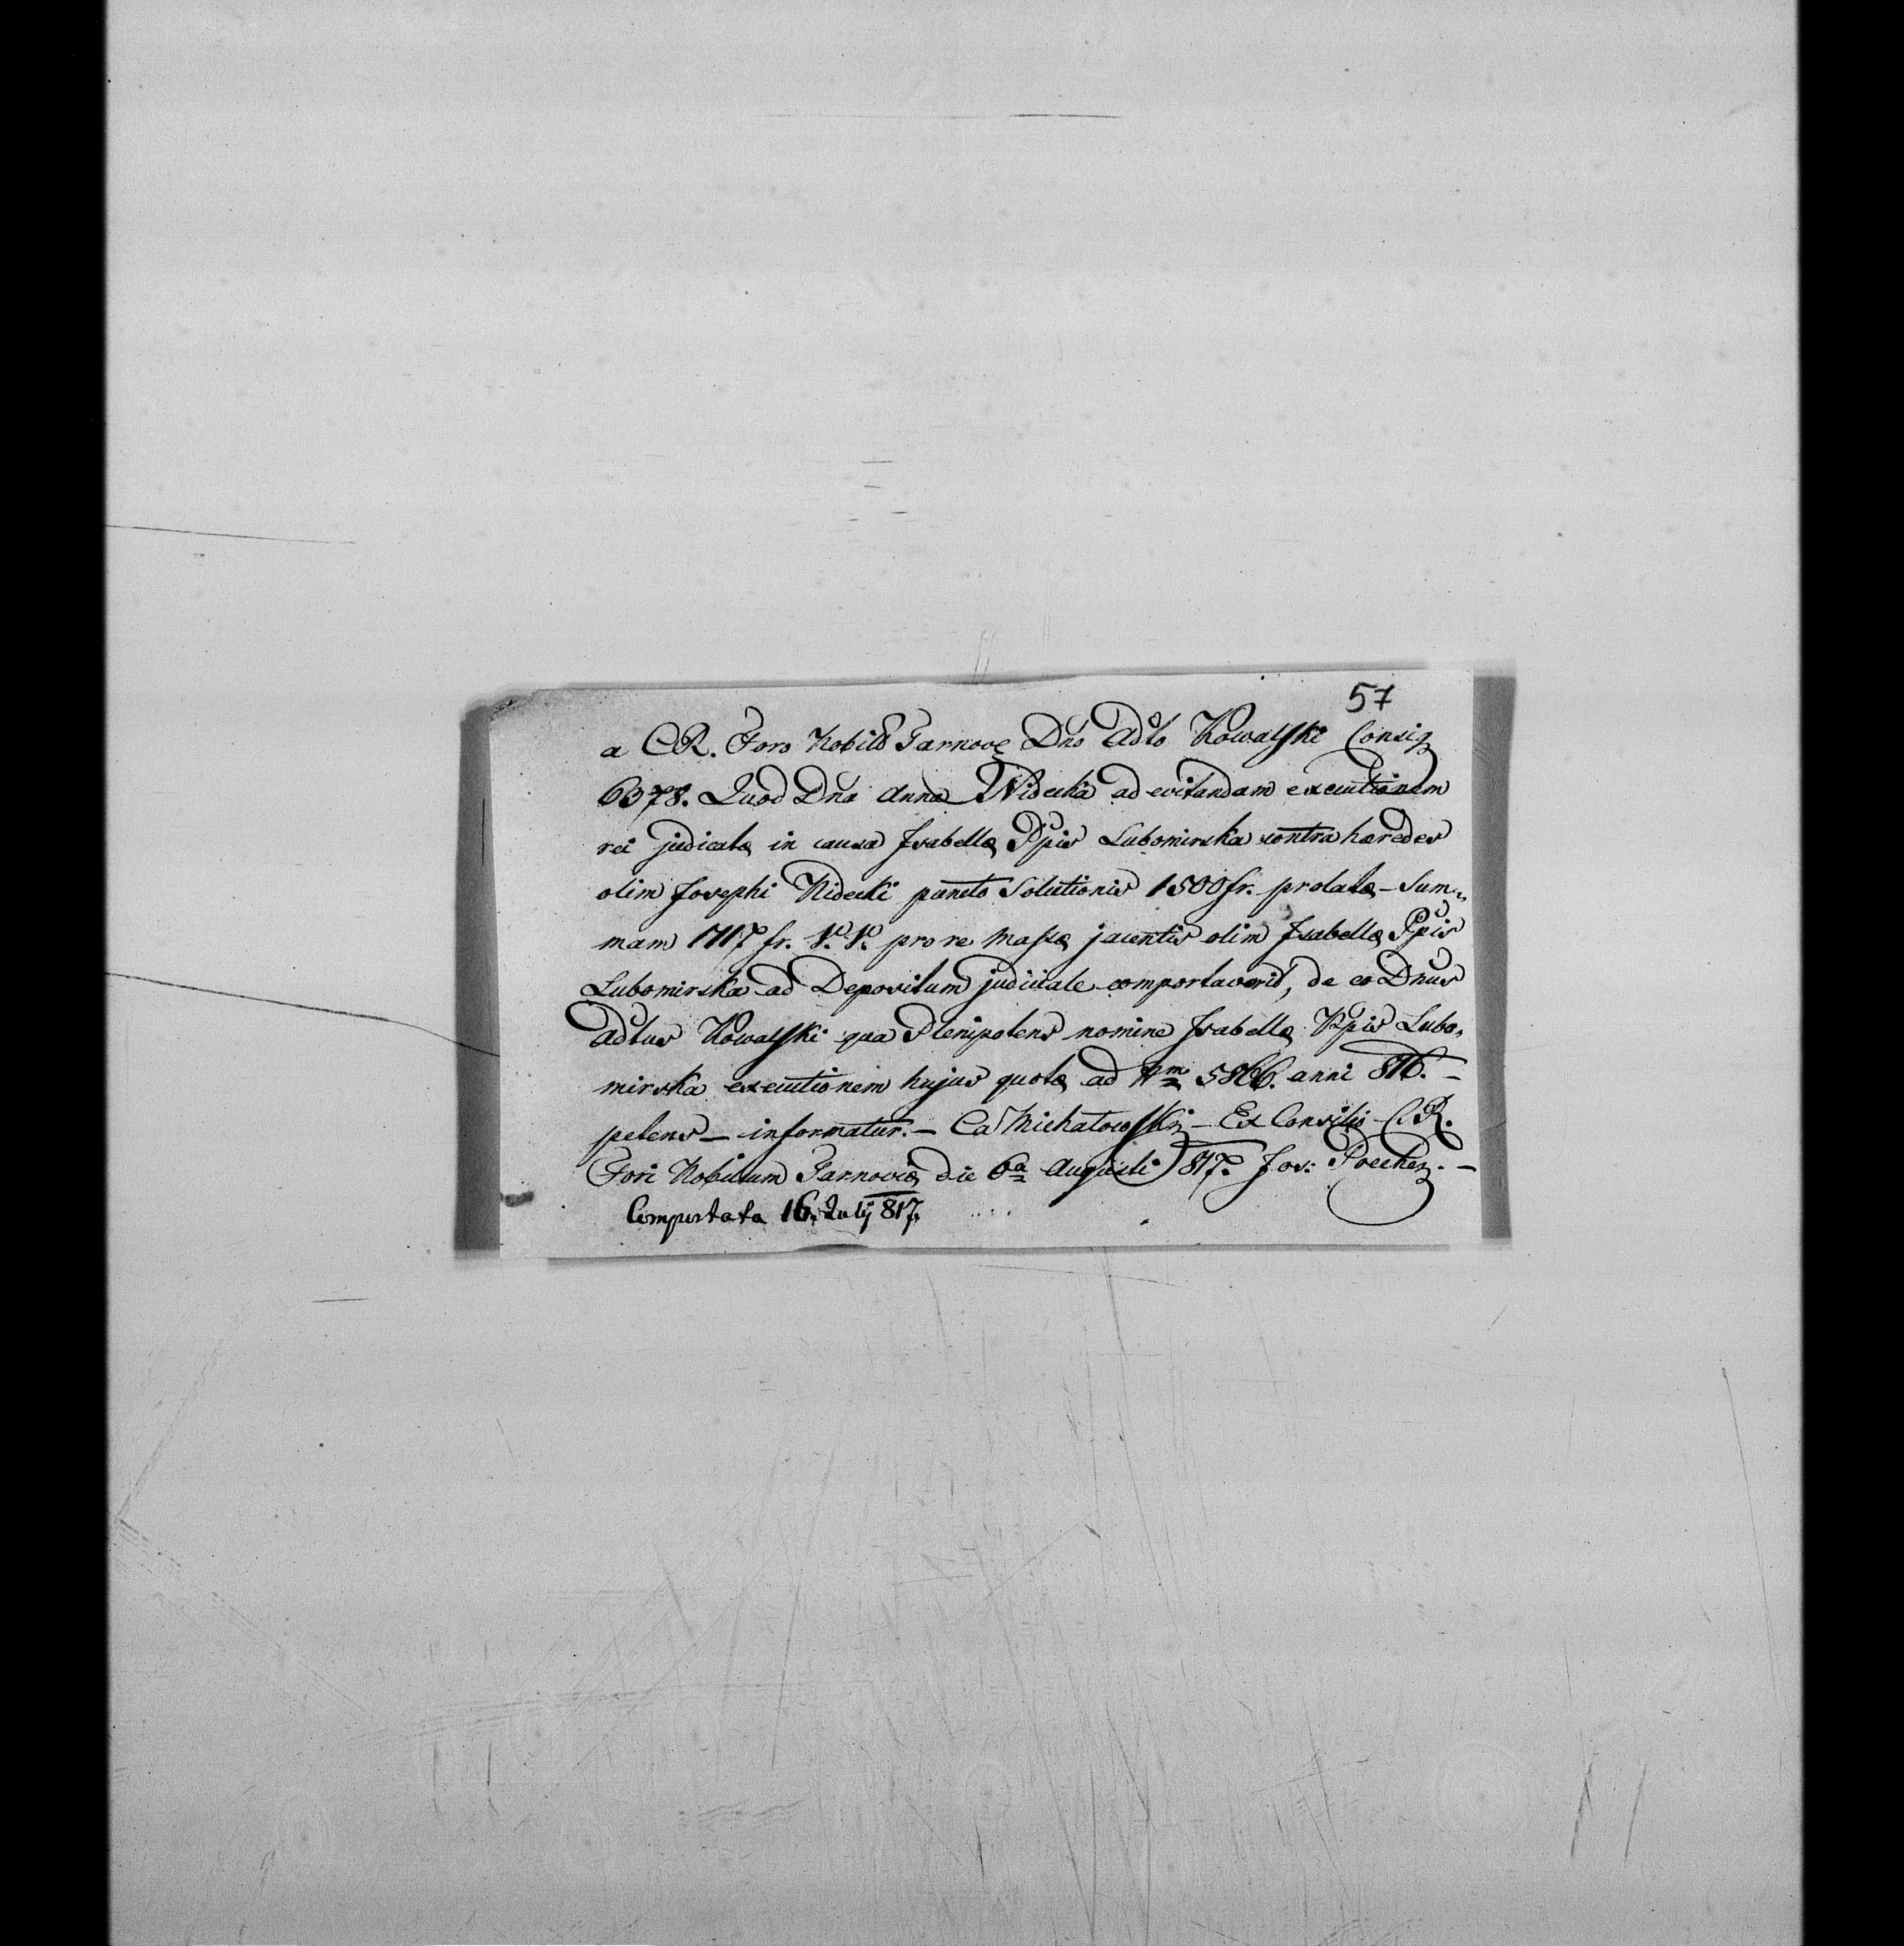 57
a C R. Foro Nobiło Tarnovę Dno Adto Kowalski Consig
6378. Quod Dna Anna Nidecka ad evitandam executionem
rei judicatę in causa Isabellę Ppis Lubomirska contra hæredes
olim Josephi Nidecki puncto Solutionis 1500 fr. prolatę – Sum„
mam 1717 fr. V. V. pro re Massę jacentis olim Isabellę Ppis
Lubomirska ad Depositum judiciale comportaverit, de eo Dnus
Adtus Kowalski qua Plenipotens nomine Isabellę Ppis Lubo„
mirska executionem hujus quotę ad Nm 5866. anni 816. –
petens – informatur. – Ca Michałowski – Ex Consilio C. R.
Fori Nobilium Tarnovię die 6a Augusti 817. Jos:
Comportata 16. July 817.